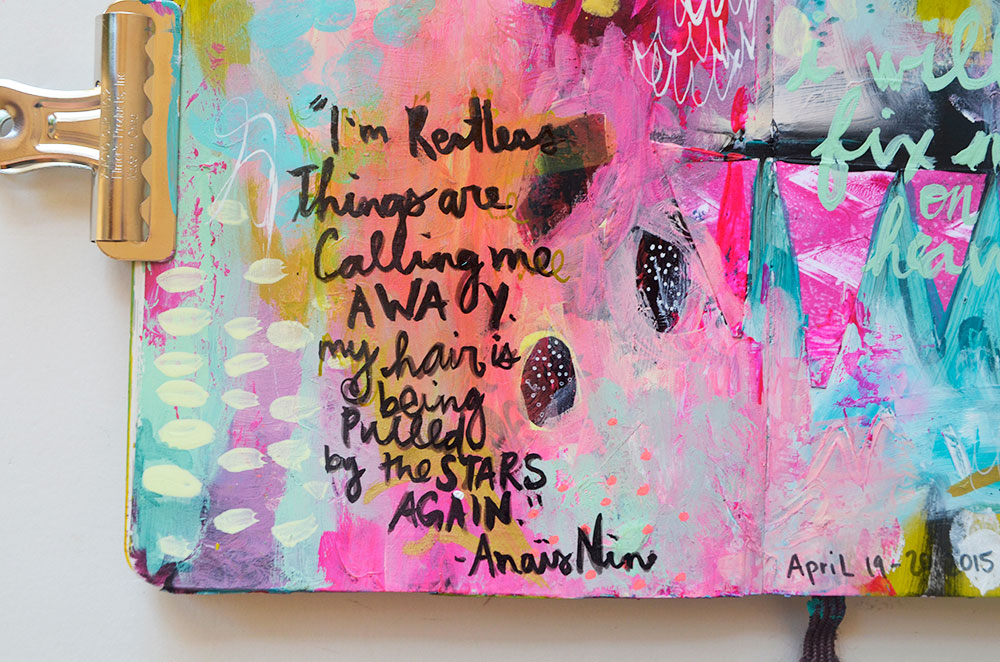 "I'm Restless
Things are
Calling me
AWAY.
my hair is
being
pulled
by the STARS
AGAIN."
-Anaïs Nin
i wil
fix
on
hea
ApriL 19-20 2015